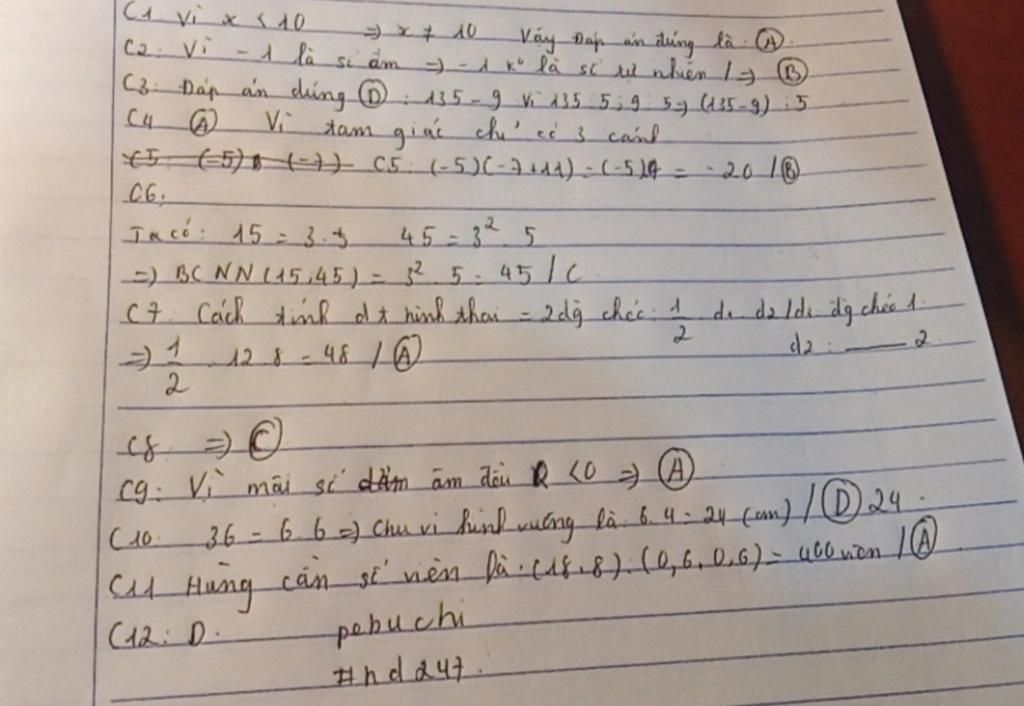 C1 Vì x < 10 => x ≠ 10 Vậy Đáp án đúng là (A).
C2: Vì -1 là số âm => -1 ko là số tự nhiên / => (B)
C3: Đáp án đúng (D): 135 - 9 vì 135 : 5; 9 : 5 => (135-9) : 5
C4 (A) Vì tam giác chỉ có 3 cạnh
C5: (-5) (-7) C5: (-5)(-7+11) = (-5)4 = -20 / (B)
C6.
Ta có: 15 = 3.5 45 = 3². 5
=> BCNN(15,45) = 3². 5 = 45 / C
C7 Cách tính dt hình thoi = 2 đg chéo: 1/2 d1 d2 / d1: đg chéo 1.
=> 1/2 . 12 8 = 48 / (A) d2: —— 2.
C8 => (C)
C9: Vì mãi số âm đều < 0 => (A)
C10. 36 = 6.6 => Chu vi hình vuông là 6.4 = 24 (cm) / (D) 24.
C11 Hùng cần số viên là: (18.8) : (0,6.0,6) = 400 viên / (A)
C12: D. pebuchi
#hd247.